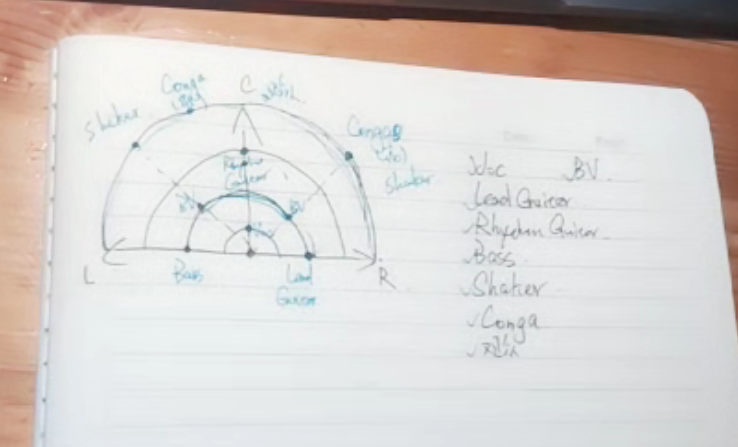 Conga
C
Shaker
Conga
Shaker
Rhythm
Guitar
BV
BV
L
Bass
Lead
Guitar
R
Voc
BV
Lead Guitar
Rhythm Guitar
Bass
Shaker
Conga